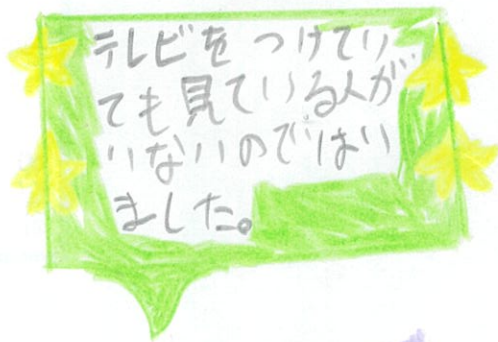 テレビをつけてい
ても見ている人が
いないのではい
ました。